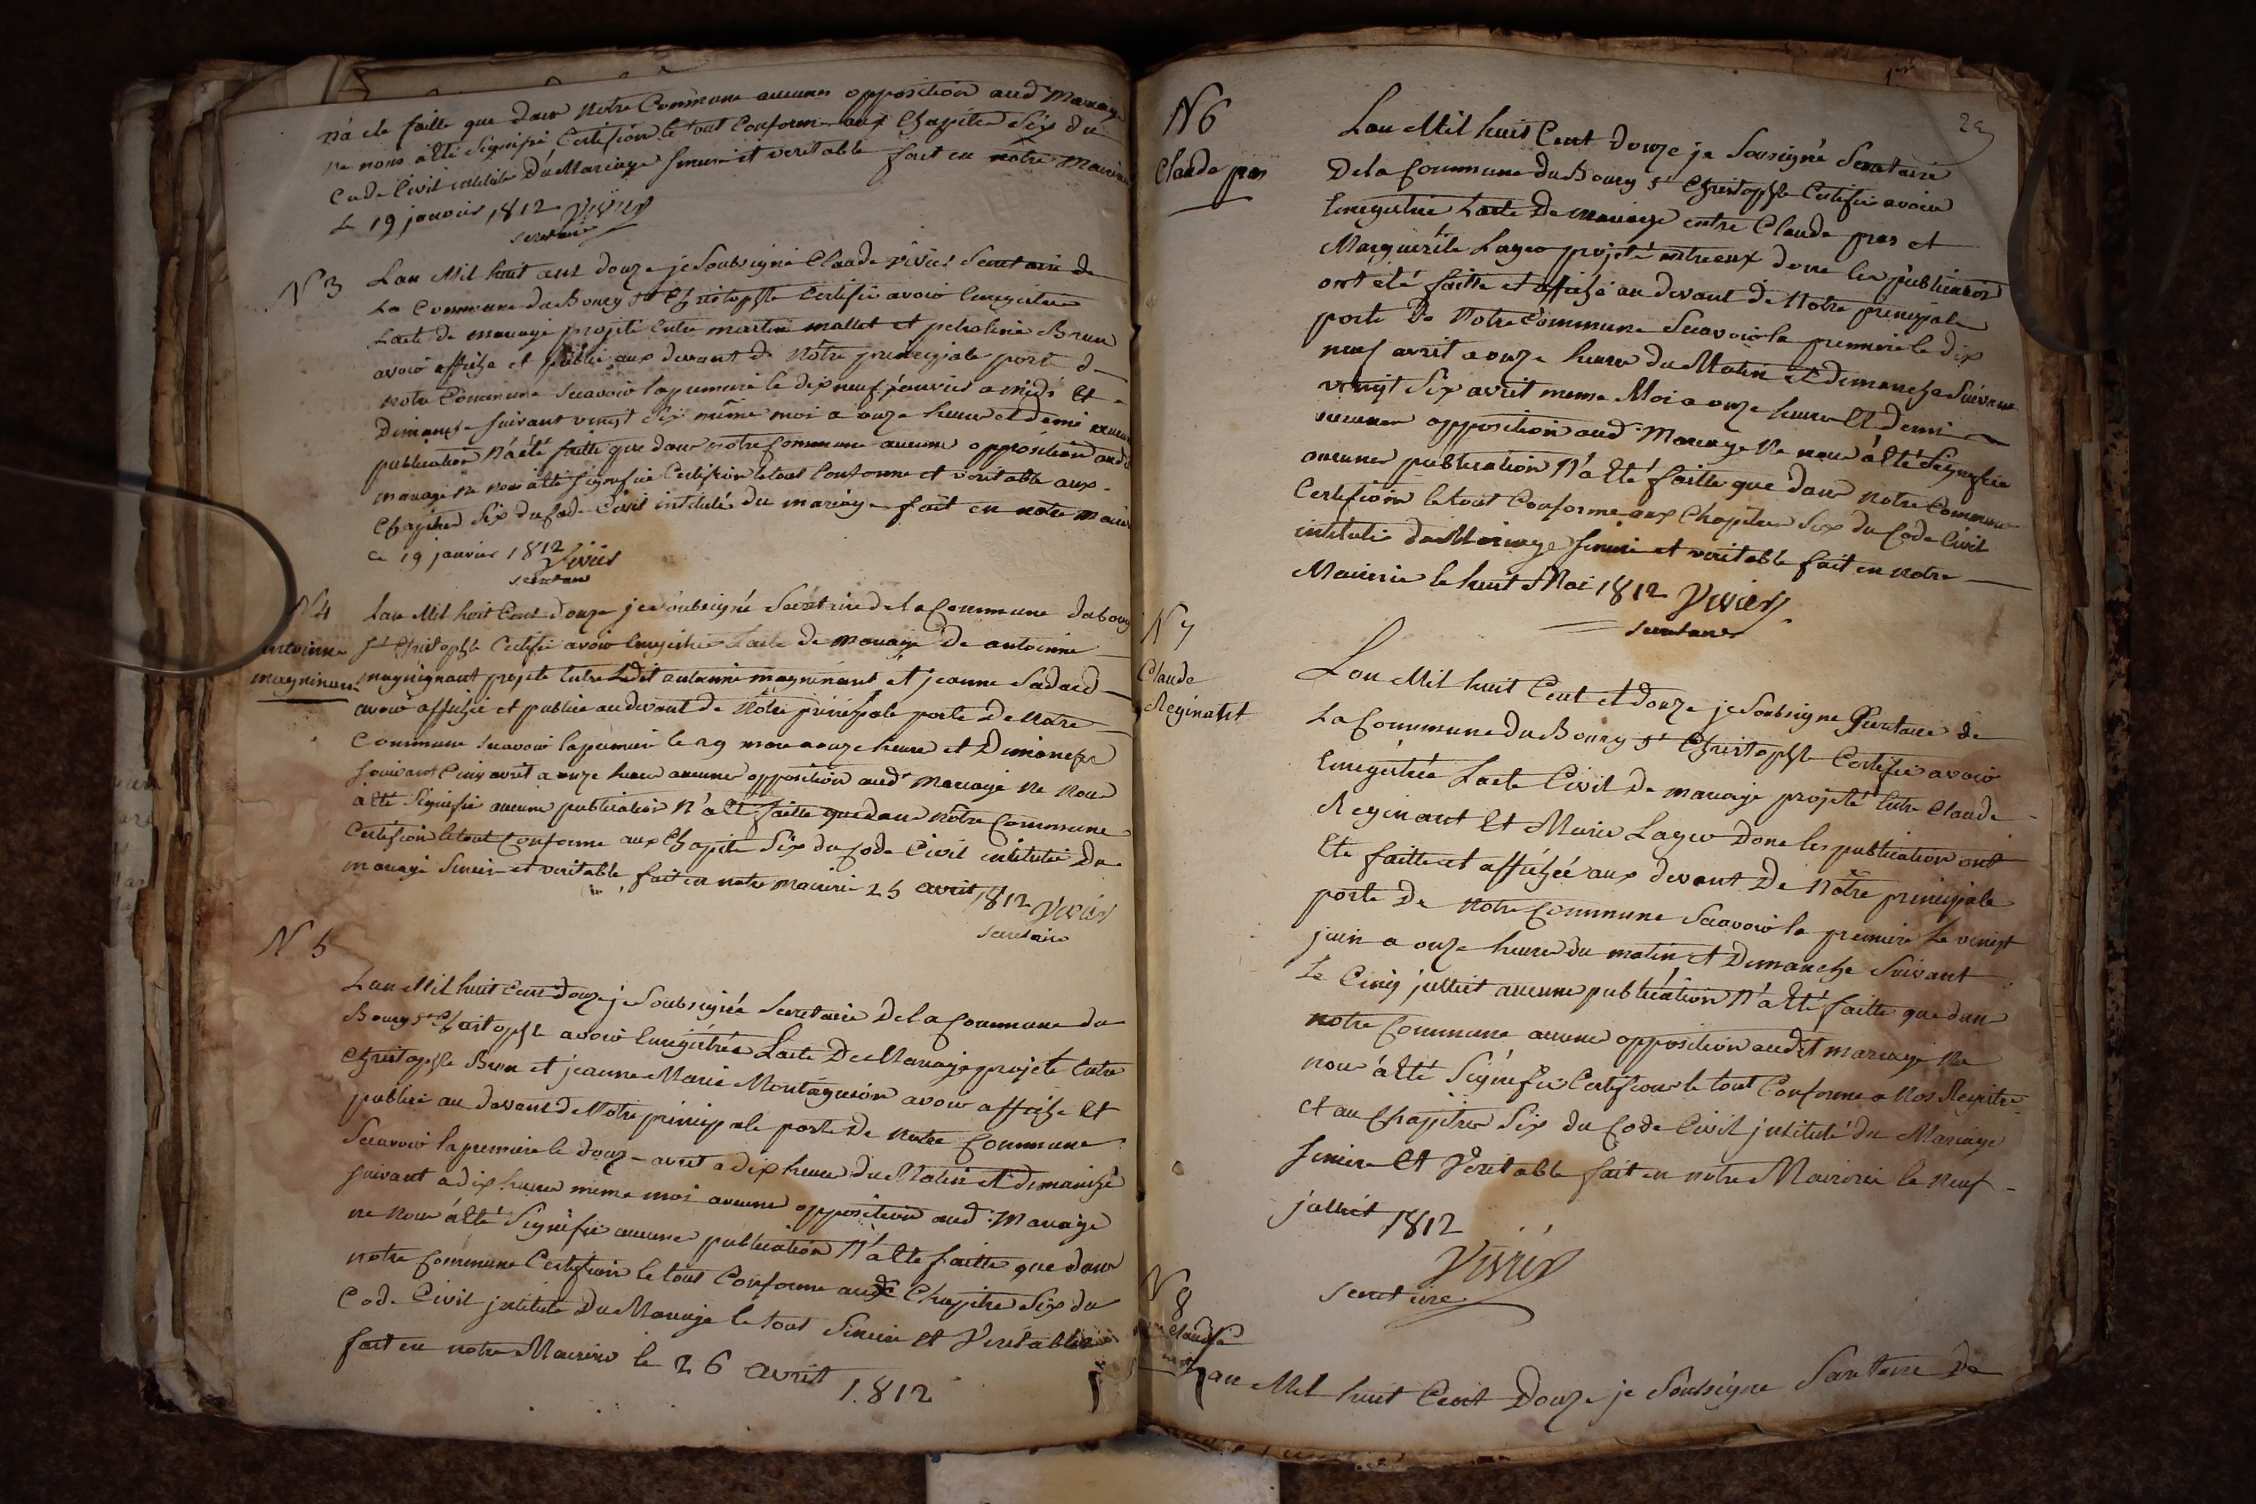 n'a ete faitte que dans notre Commune aucunes opposition aud mariage
ne nous a Eté Signifié Certifions le tout Conforme aux Chapitre Six du
Code Civil intitulé Du Mariage Sincere et veritable fait en notre Mairie
Le 19 janvier 1812 Vivier
Secretaire
N 3
Lan Mil huit cent douze je Soubsigné Claude vivier Secretaire de
La Commune du Bourg St Christophle Certifie avoir Enregistre
Lacte de mariage projeté Entre martin mallet et petroline Brun
avoir affiche et publié aux devant de Notre principale porte de
notre Commune Scavoir la premiere le dix neuf janvier a midi Et
Dimanche Suivant vingt Six même moi a onze heure et demi aucune
publication N'a été faitte que dans notre Commune aucune opposition audit
mariage ne nous a Eté Signifié Certifion le tout Conforme et veritable aux
Chapitre Six du Code Civil intitulé du mariage fait en notre Mairie
ce 19 janvier 1812 Vivier
Secretaire
N 4
antoinne
magninant
Lan Mil huit Cent Douze je Soubsigné Secretaire de la Commune du bourg
St Christophle Certifie avoir Enregistrer Lacte de Mariage De antoinne
magnignant projeté Entre Ledit antoinne magninant Et jeanne Sadard
avoir affichée et publiée au devant de Notre principale porte De Notre
Commune Scavoir la premier le 29 mars a onze heure et Dimanche
Suivant Cinq avril a onze heure aucunes opposition aud mariage ne nous
a Eté Signifie aucune publication N'a Eté faitte que dans Notre Commune
Certifion le tout Conforme aux Chapitre Six du Code Civil intitulé Du
mariage Sincere et veritable fait en notre Mairie 25 avril 1812 Vivier
Secretaire
N 5
Lan Mil huit Cent Douze je Soubsigné Secretaire De la Commune du
Bourg St Christophle avoir Enregistrée Lacte De Mariage projeté Entre
Christophle Brun et jeanne Marie Montagnion avoir affiche Et
publiée au devant de Notre principale porte De Notre Commune
Scavoir la premiere le douze avril a dix heure du Matin Et dimanche
Suivant a dix heure meme moi aucune opposition aud Mariage
ne nous a Eté Signifie aucune publication N'a Eté faitte que dans
notre Commune Certifion le tout Conforme aux Chapitre Six du
Code Civil jntitulé Du Mariage le tout Sincere Et Veritable
fait en notre Mairie le 26 avril
1812
29
N 6
Claude pras
Lan Mil huit Cent Douze je Sousigné Secretaire
De la Commune Du Bourg St Christophle Certifie avoir
Enregistrée Lacte De Mariage entre Claude pras et
Marguerite Lager projeté entreeux donc les publication
ont été faitte et affiché au devant de Notre principale
porte De Notre Commune Scavoir la premiere le dix
neuf avril a onze heure du Matin Et dimanche Suivant
vingt Six avril meme Moi a onze heure Et Demi
aucune opposition aud Mariage Ne nous a Eté Signifiée
aucune publication N'a Eté faitte que dans notre Commune
Certifion le tout Conforme aux Chapitre Six du Code Civil
intitulé du Mariage Sincere et veritable fait en notre
Mairie le huit Mai 1812 Vivier
Secretaire
N 7
Claude
Reginant
Lan Mil huit Cent et Douze je Soubsigne Secretaire de
La Commune Du Bourg St Christophle Certifie avoir
Enregistrée Lacte Civil De mariage projeté Entre Claude
Reginant Et Marie Lager Donc les publication ont
Ete faitte et affichée aux devant De Notre principale
porte De Notre Commune Scavoir la premiere Le vingt
juin a onze heure du matin et Dimanche Suivant
Le Cinq juillet aucune publication N'a Eté faitte que dans
notre Commune aucune opposition audit mariage Ne
nous a Eté Signifie Certifions le tout Conforme a Nos Registre
et au Chapitre Six du Code Civil jntitulé du Mariage
Sincere Et Veritable fait en notre Mairie le Neuf
juillet 1812
Vivier
Secretaire
N 8
Claude
Lan Mil huit Cent Douze je Soubsigne Secretaire De